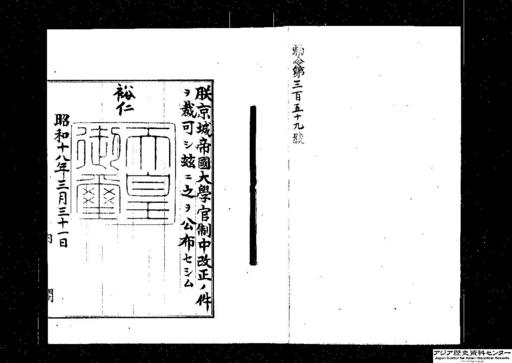 勅令第三百五十九號
朕京城帝國大學官制中改正ノ件
ヲ裁可シ茲ニ之ヲ公布セシム
裕仁
天皇
御璽
昭和十八年三月三十一日
内閣
アジア歴史資料センター
Japan Center for Asian Historical Records